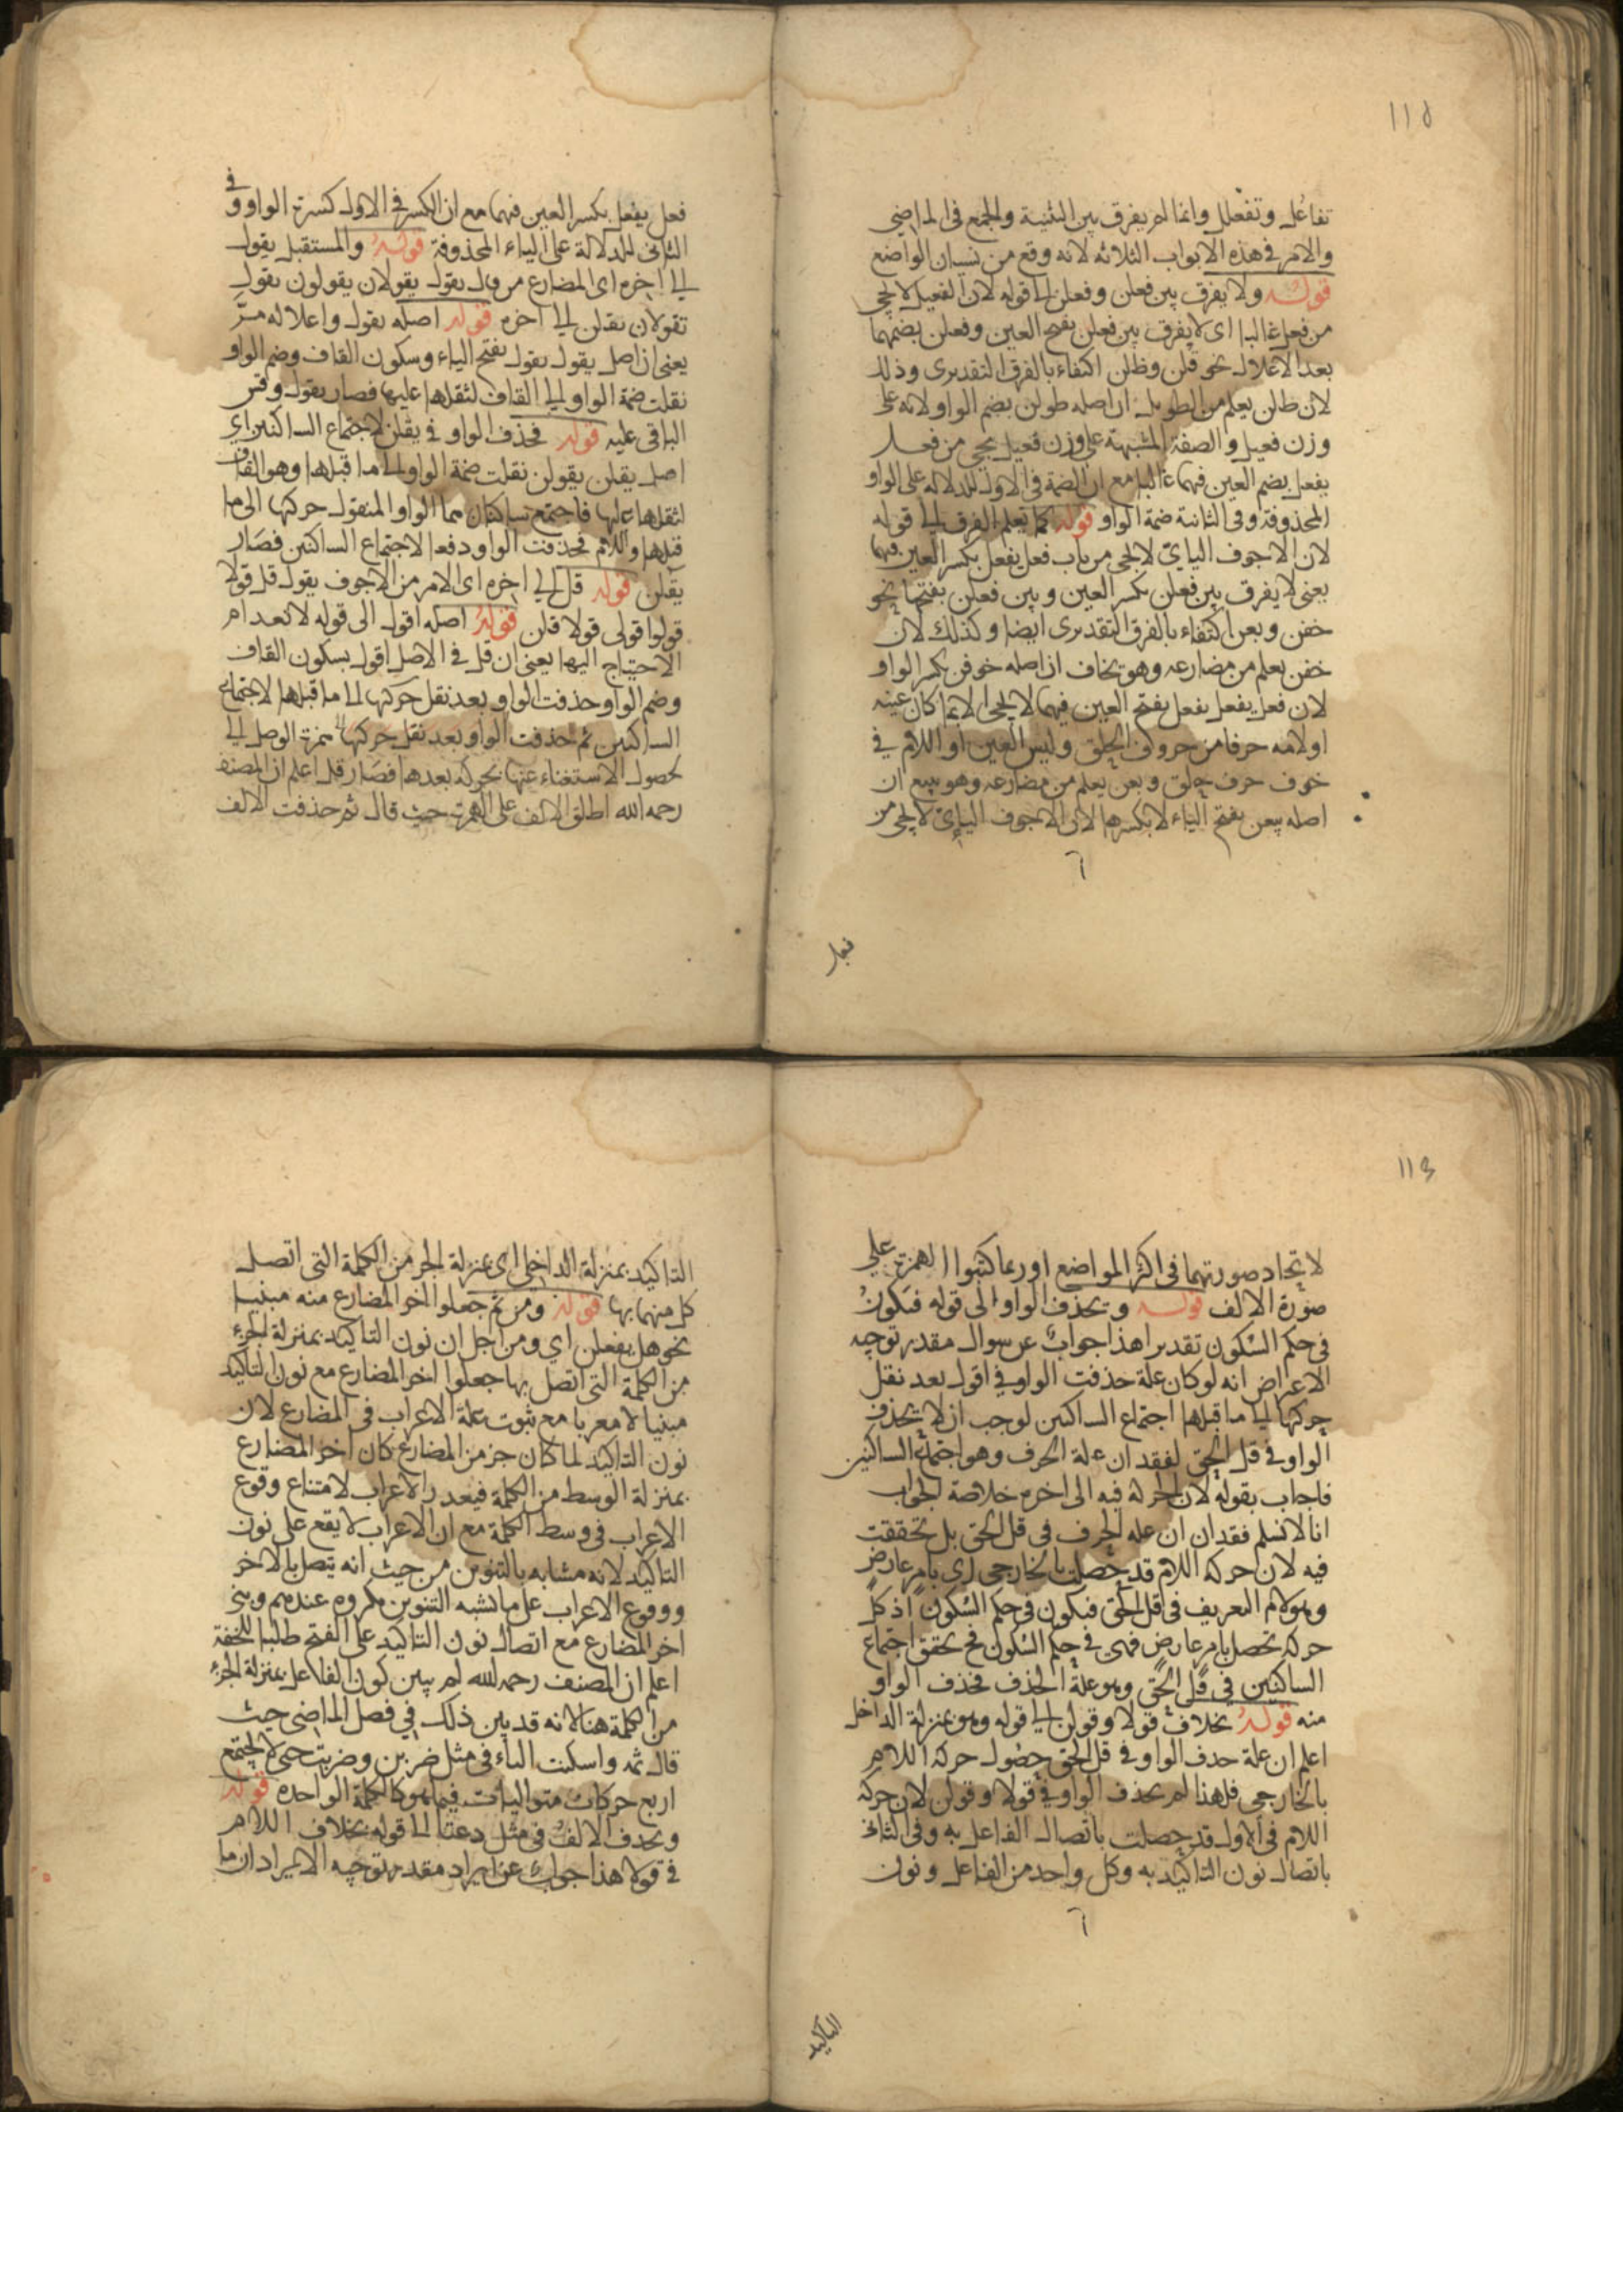 115
تفاعل وتفعلل وانما لم يفرق بين التثنية والجمع فى الماضى
والامر فى هذه الابواب الثلاثه لانه وقع من نسيان الواضع
قوله ولا يفرق بين فعلن وفعلن الى قوله لان الفعيل لا يجى
من فعل غالبا اى لا يفرق بين فعلن بفتح العين وفعلن بضمهما
بعد الاعلال نحو قلن وطلن اكتفاء بالفرق التقديرى وذلك
لان طلن يعلم من الطويل ان اصله طولن بضم الواو لانه على
وزن فعيل والصفة المشبهة على وزن فعيل يجى من فعل
يفعل بضم العين فيهما غالبا مع ان الضمة فى الاول للدلاله على الواو
المحذوفة وفى الثانية ضمة الواو قوله كما يعلم الفرق الى قوله
لان الاجوف اليايى لا يجى من باب فعل يفعل بكسر العين فيهما
يعنى لا يفرق بين فعلن بكسر العين وبين فعلن بفتحها نحو
خفن وبعن اكتفاء بالفرق التقديرى ايضا وكذلك لان
خفن يعلم من مضارعه وهو يخاف ان اصله خوفن بكسر الواو
لان فعل يفعل بفتح العين فيهما لا يجى الا بما كان عينه
او لامه حرفا من حروف الحلق وليس العين او اللام فى
خوف حرف حلق وبعن يعلم من مضارعه وهو يبيع ان
اصله بيعن بفتح الياء لا بكسرها لان الاجوف اليايى لا يجى من
فعل
فعل يفعل بكسر العين فيهما مع ان الكسر فى الاول كسرة الواو وفى
الثانى للدلالة على الياء المحذوفة قوله والمستقبل يقول
الى اخره اى المضارع من قال يقول يقولان يقولون تقول
تقولان يقلن الى اخره قوله اصله يقول واعلاله مرّ
يعنى ان اصل يقول يقول بفتح الياء وسكون القاف وضم الواو
نقلت ضمة الواو الى القاف لثقلها عليها فصار يقول وقس
الباقى عليه قوله فحذف الواو فى يقلن لاجتماع الساكنين اى
اصل يقلن يقولن نقلت ضمة الواو الى ما قبلها وهو القاف
لثقلها عليها فاجتمع ساكنان هما الواو المنقول حركتها الى ما
قبلها واللام فحذفت الواو دفعا لاجتماع الساكنين فصار
يقلن قوله قل الى اخره اى الامر من الاجوف يقول قل قولا
قولوا قولى قولا قلن قوله اصله اقول الى قوله لانعدام
الاحتياج اليها يعنى ان قل فى الاصل اقول بسكون القاف
وضم الواو حذفت الواو بعد نقل حركتها الى ما قبلها لاجتماع
الساكنين ثم حذفت الواو بعد نقل حركتها همزة الوصل الى
لحصول الاستغناء عنها بحركة بعدها فصار قل اعلم ان المصنف
رحمه الله اطلق الالف على الهمزة حيث قال ثم حذفت الالف
113
لاتحاد صورتهما فى اكثر المواضع او ربما كتبوا الهمزة على
صورة الالف قوله ويحذف الواو الى قوله فيكون
فى حكم السكون تقديرا هذا جواب عن سوال مقدر توجيه
الاعتراض انه لو كان علة حذفت الواو فى اقول بعد نقل
حركتها الى ما قبلها اجتماع الساكنين لوجب ان لا يحذف
الواو فى قل الحق لفقدان علة الحرف وهو اجتماع الساكنين
فاجاب بقوله لان الحركة فيه الى اخره خلاصة الجواب
انا لا نسلم فقدان ان عله الحرف فى قل الحق بل تحققت
فيه لان حركة اللام قد حصلت بالخارجى اى بامر عارض
وهو لام التعريف فى قل الحق فيكون فى حكم السكون اذ كل
حركة تحصل بامر عارض فهى فى حكم السكون فح تحقق اجتماع
الساكنين فى قل الحق وهو علة الحذف فحذف الواو
منه قوله بخلاف قولا وقولن الى قوله وهو بمنزلة الداخل
اعلم ان علة حذف الواو فى قل الحق حصول حركة اللام
بالخارجى فلهذا لم يحذف الواو فى قولا وقولن لان حركة
اللام فى الاول قد حصلت باتصال الفاعل به وفى الثانى
باتصال نون التاكيد به وكل واحد من الفاعل ونون
التاكيد
التاكيد بمنزلة الداخلى اى بمنزلة الجز من الكلمة التى اتصل
كل منهما بها قوله ومن ثم جعلوا اخر المضارع منه مبنيا
نحو هل يفعلن اي ومن اجل ان نون التاكيد بمنزلة الجزء
من الكلمة التى اتصل بها جعلوا اخر المضارع مع نون التاكيد
مبنيا لا معربا مع ثبوت علة الاعراب فى المضارع لان
نون التاكيد لما كان جز من المضارع كان اخر المضارع
بمنزلة الوسط من الكلمة فبعد را الاعراب لامتناع وقوع
الاعراب فى وسط الكلمة مع ان الاعراب لا يقع على نون
التاكيد لانه مشابه بالتنوين من حيث انه يتصل بالاخر
ووقوع الاعراب على ما تشبه التنوين مكروه عندهم وبنى
اخر المضارع مع اتصال نون التاكيد على الفتح طلبا للخفة
اعلم ان المصنف رحمه الله لم يبين كون الفاعل بمنزلة الجزء
من الكلمة هنا لانه قد بين ذلك فى فصل الماضى حيث
قال ثمه واسكنت الباء فى مثل ضربن وضربت حتى لا يجتمع
اربع حركات متواليات فيما هو كالكلمة الواحده قوله
ويحذف الالف فى مثل دعتا الى قوله بخلاف اللام
فى قولا هذا جواب عن ايراد مقدر توجيه الايراد ان ما